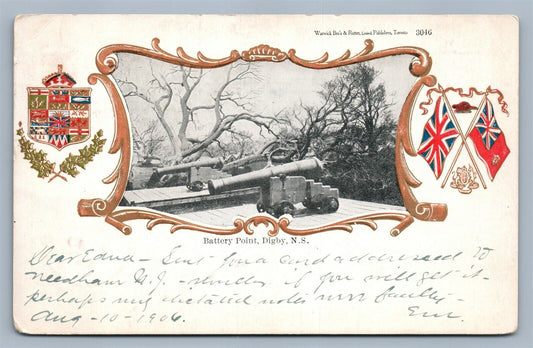 Warwick Bro's & Rutter, Limited, Publishers, Toronto 3046
Battery Point, Digby, N.S.
Dear Edna - Sent you a card addressed to
Needham N.J. - wonder if you will get it -
perhaps my dictated notes were faulty -
Aug - 10 - 1906. Em.